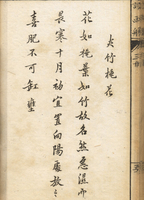 夹竹桃花
花如桃葉如竹故名然惡濕而
畏寒十月初宜置向陽處放之
喜肥不可缸壅